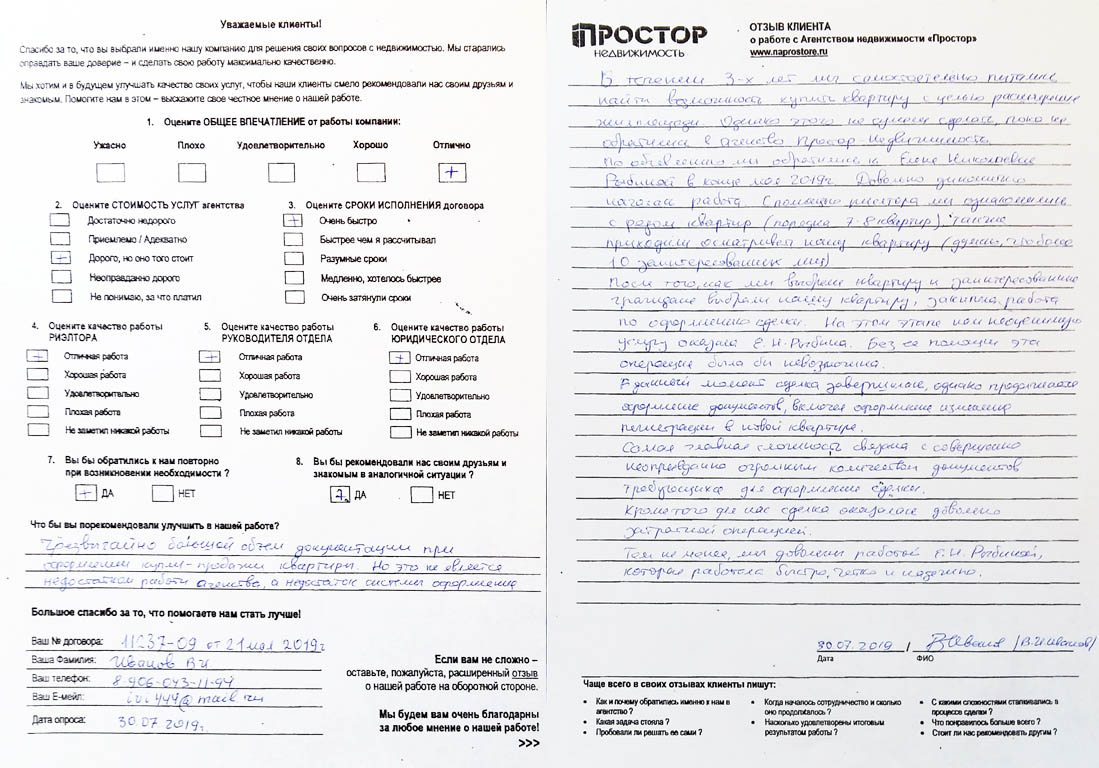 Уважаемые клиенты!
Спасибо за то, что вы выбрали именно нашу компанию для решения своих вопросов с недвижимостью. Мы старались
оправдать ваше доверие – и сделать свою работу максимально качественно.
Мы хотим и в будущем улучшать качество своих услуг, чтобы наши клиенты смело рекомендовали нас своим друзьям и
знакомым. Помогите нам в этом – выскажите свое честное мнение о нашей работе.
1. Оцените ОБЩЕЕ ВПЕЧАТЛЕНИЕ от работы компании:
Ужасно Плохо Удовлетворительно Хорошо Отлично
+
2. Оцените СТОИМОСТЬ УСЛУГ агентства
Достаточно недорого
Приемлемо / Адекватно
+ Дорого, но оно того стоит
Неоправданно дорого
Не понимаю, за что платил
3. Оцените СРОКИ ИСПОЛНЕНИЯ договора
+ Очень быстро
Быстрее чем я рассчитывал
Разумные сроки
Медленно, хотелось быстрее
Очень затянули сроки
4. Оцените качество работы
РИЭЛТОРА
+ Отличная работа
Хорошая работа
Удовлетворительно
Плохая работа
Не заметил никакой работы
5. Оцените качество работы
РУКОВОДИТЕЛЯ ОТДЕЛА
+ Отличная работа
Хорошая работа
Удовлетворительно
Плохая работа
Не заметил никакой работы
6. Оцените качество работы
ЮРИДИЧЕСКОГО ОТДЕЛА
+ Отличная работа
Хорошая работа
Удовлетворительно
Плохая работа
Не заметил никакой работы
7. Вы бы обратились к нам повторно
при возникновении необходимости ?
+ ДА НЕТ
8. Вы бы рекомендовали нас своим друзьям и
знакомым в аналогичной ситуации ?
ДА НЕТ
Что бы вы порекомендовали улучшить в нашей работе?
Чрезвычайно большой объем документации при
оформлении купли-продажи квартиры. Но это не является
недостатком работы агенства, а недостаток системы оформления
Большое спасибо за то, что помогаете нам стать лучше!
Ваш № договора: 11237-09 от 21 мая 2019г
Ваша Фамилия: Иванов В.И.
Ваш телефон: 8 906-043-11-94
Ваш Е-мейл: @mail.ru
Дата опроса: 30.07 2019г.
Если вам не сложно –
оставьте, пожалуйста, расширенный отзыв
о нашей работе на оборотной стороне.
Мы будем вам очень благодарны
за любое мнение о нашей работе!
>>>
ПРОСТОР
НЕДВИЖИМОСТЬ
ОТЗЫВ КЛИЕНТА
о работе с Агентством недвижимости «Простор»
www.naprostore.ru
В течении 3-х лет мы самостоятельно пытались
найти возможность купить квартиру с целью расширения
жилплощади. Однако этого не сумели сделать, пока не
обратились в агенство Простор-Недвижимость.
По объявлению мы обратились к Елене Николаевне
Рыбиной в конце мая 2019г. Довольно динамично
началась работа. С помощью риэлтора мы ознакомились
с рядом квартир (порядка 7-8 квартир), также
приходили осматривать нашу квартиру (думаю, что более
10 заинтересованных лиц)
После того, как мы выбрали квартиру и заинтересованные
граждане выбрали нашу квартиру, закипела работа
по оформлению сделки. На этом этапе нам неоценимую
услугу оказала Е.Н. Рыбина. Без ее помощи эта
операция была бы невозможна.
В данный момент сделка завершилась, однако продолжается
оформление документов, включая оформление изменения
регистрации в новой квартире.
Самая главная сложность связана с совершенно
неоправданно огромным количеством документов
требующихся для оформления сделки.
Кроме того для нас сделка оказалась довольно
затратной операцией.
Тем не менее, мы довольны работой Е.Н. Рыбиной,
которая работала быстро, четко и надежно.
30.07.2019 / (В.И.Иванов)
Дата ФИО
Чаще всего в своих отзывах клиенты пишут:
• Как и почему обратились именно к нам в
агентство ?
• Какая задача стояла ?
• Пробовали ли решать ее сами ?
• Когда началось сотрудничество и сколько
оно продолжалось ?
• Насколько удовлетворены итоговым
результатом работы ?
• С какими сложностями сталкивались в
процессе сделки ?
• Что понравилось больше всего ?
• Стоит ли нас рекомендовать другим ?